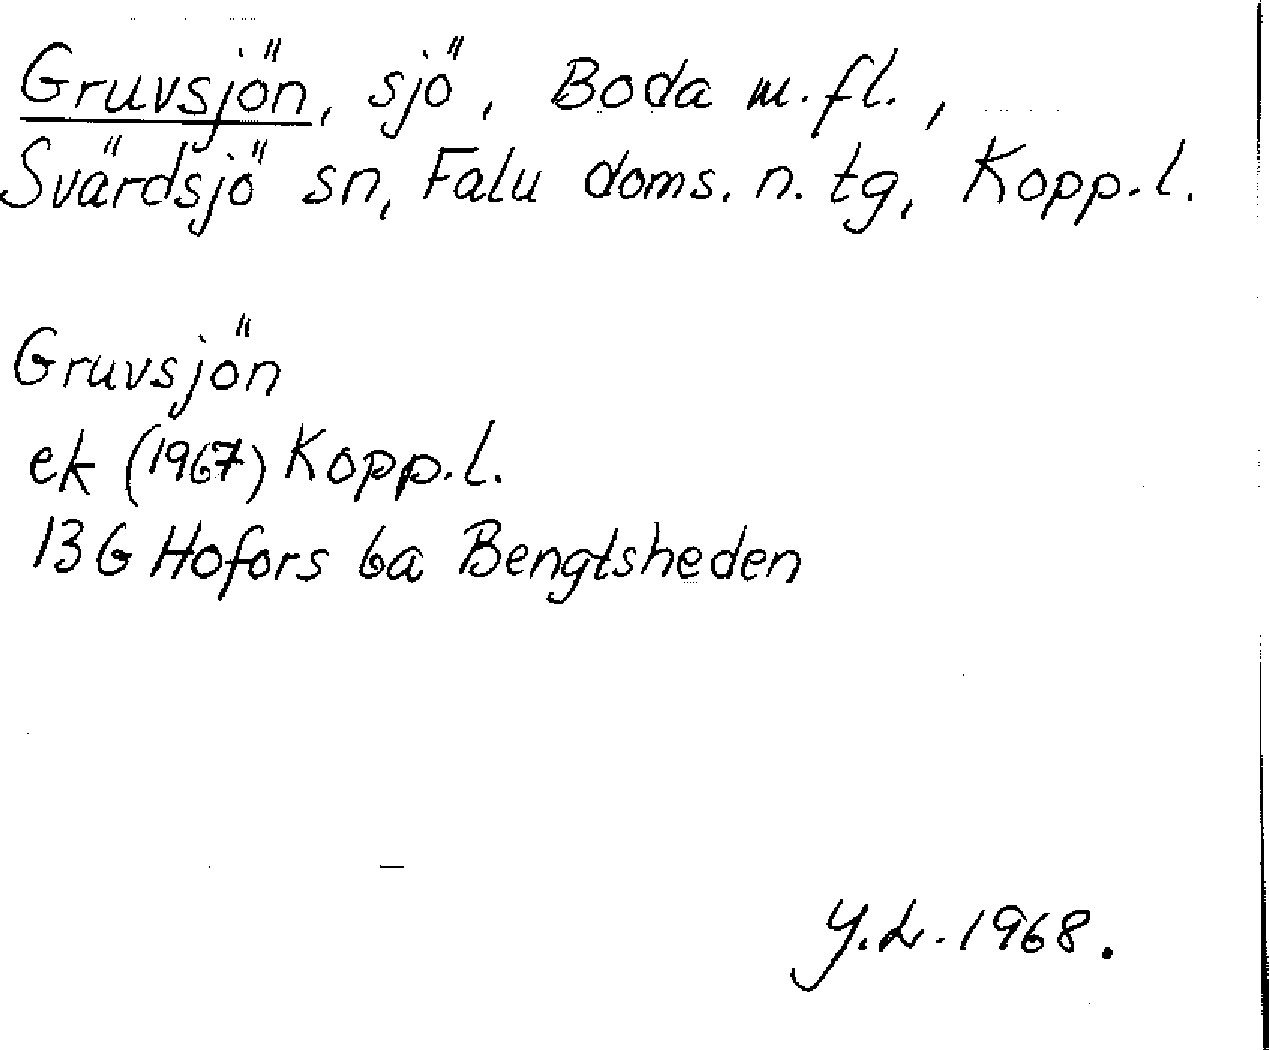 Gruvsjön, sjö, Boda m.fl.,
Svärdsjö sn, Falu doms. n. tg, Kopp.l.
Gruvsjön
ek (1967) Kopp.l.
13G Hofors 6a Bengtsheden
Y.L. 1968.